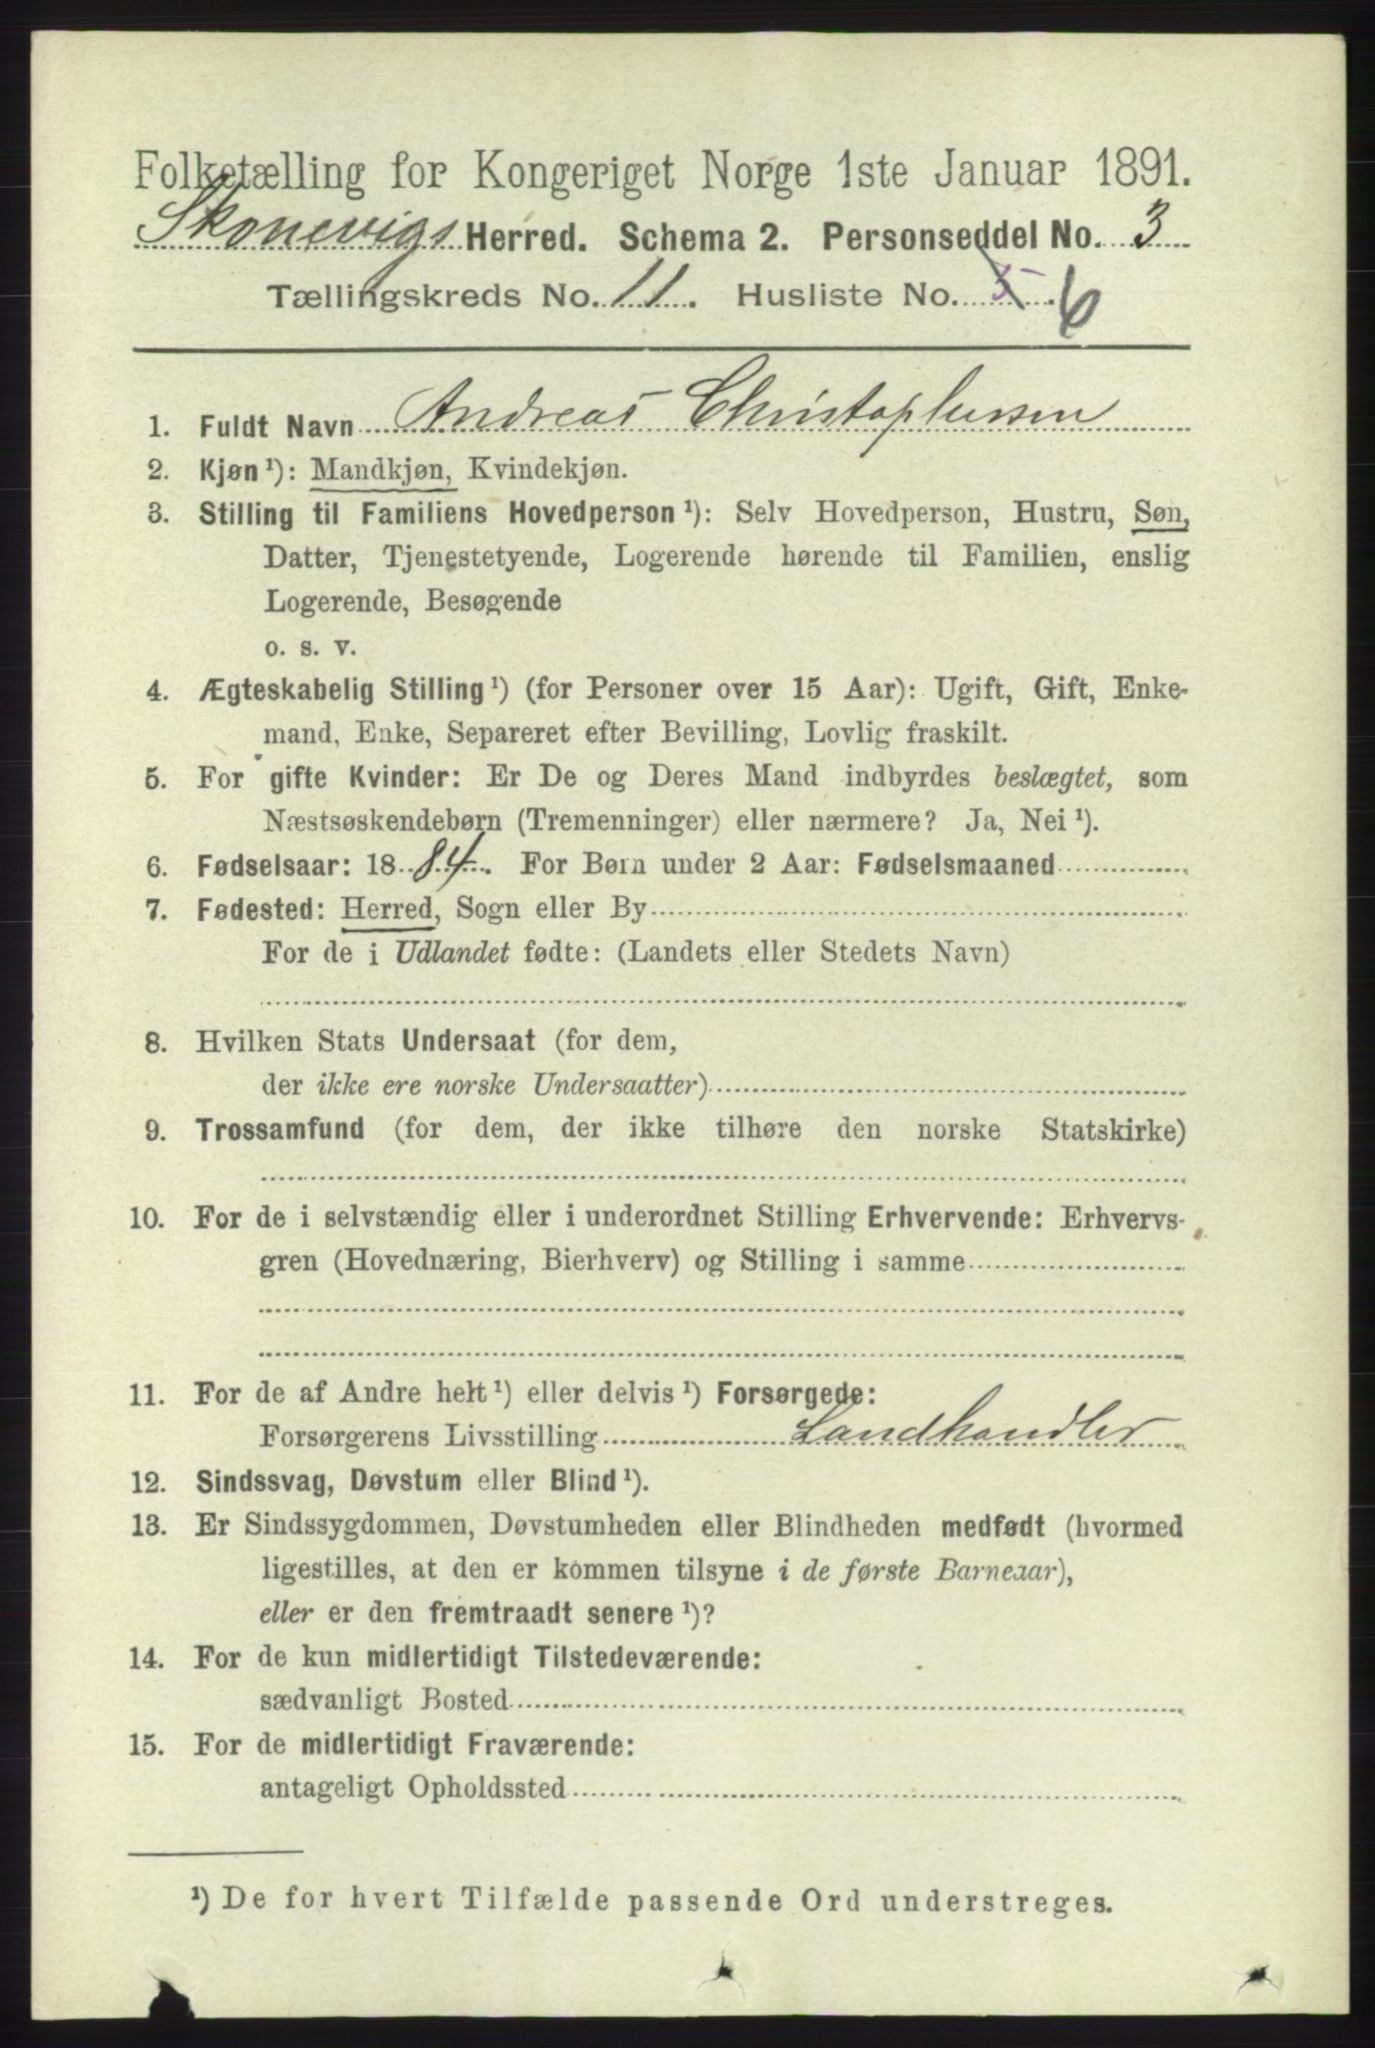 Folketælling for Kongeriget Norge 1ste Januar 1891.
Skonevigs Herred. Schema 2. Personseddel No. 3
Tællingskreds No. 11. Husliste No. 5. 6
1. Fuldt Navn Andreas Christophersen
2. Kjøn ¹): Mandkjøn, Kvindekjøn.
3. Stilling til Familiens Hovedperson ¹): Selv Hovedperson, Hustru, Søn,
Datter, Tjenestetyende, Logerende hørende til Familien, enslig
Logerende, Besøgende
o. s. v.
4. Ægteskabelig Stilling ¹) (for Personer over 15 Aar): Ugift, Gift, Enke-
mand, Enke, Separeret efter Bevilling, Lovlig fraskilt.
5. For gifte Kvinder: Er De og Deres Mand indbyrdes beslægtet, som
Næstsøskendebørn (Tremenninger) eller nærmere? Ja, Nei ¹).
6. Fødselsaar: 1884. For Børn under 2 Aar: Fødselsmaaned
7. Fødested: Herred, Sogn eller By
For de i Udlandet fødte: (Landets eller Stedets Navn)
8. Hvilken Stats Undersaat (for dem,
der ikke ere norske Undersaatter)
9. Trossamfund (for dem, der ikke tilhøre den norske Statskirke)
10. For de i selvstændig eller i underordnet Stilling Erhvervende: Erhvervs-
gren (Hovednæring, Bierhverv) og Stilling i samme
11. For de af Andre helt ¹) eller delvis ¹) Forsørgede:
Forsørgerens Livsstilling Landhandler
12. Sindssvag, Døvstum eller Blind ¹).
13. Er Sindssygdommen, Døvstumheden eller Blindheden medfødt (hvormed
ligestilles, at den er kommen tilsyne i de første Barneaar),
eller er den fremtraadt senere ¹)?
14. For de kun midlertidigt Tilstedeværende:
sædvanligt Bosted
15. For de midlertidigt Fraværende:
antageligt Opholdssted
¹) De for hvert Tilfælde passende Ord understreges.